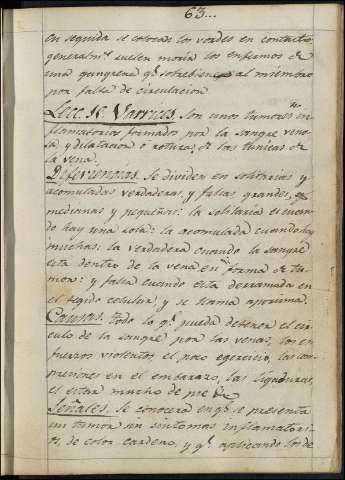 63...
en seguida se colocan los vordes en contacto
generalmte. suelen morir los enfermos de
una gangrena qe. sobrebiene al miembro
por falta de circulacion
Lecc. 18. Varices. Son unos tumores no in-
flamatorios formados por la sangre veno-
sa, y delatacion ó rotura, de las tunicas de
la vena.
Diferencias. Se dividen en solitarias y
acomuladas verdaderas, y falsas, grandes,
medianas y pequeñas: la solitaria es cuan-
do hay una sola: la acomulada cuando hay
muchas: la verdadera cuando la sangre
esta dentro de la vena en forma de tu-
mor: y falsa cuando esta derramada en
el tegido celular, y se llama
Causas. todo lo qe. pueda detener el cir-
culo de la sangre por las venas, los es-
fuerzos violentos, el poco egercicio, las com-
presiones en el embarazo, las ligaduras,
el estar mucho de pie &
Señales. Se conocerá en qe. se presenta
un tumor sin sintomas inflamatori-
os, de color cardeno, y qe. aplicando los de